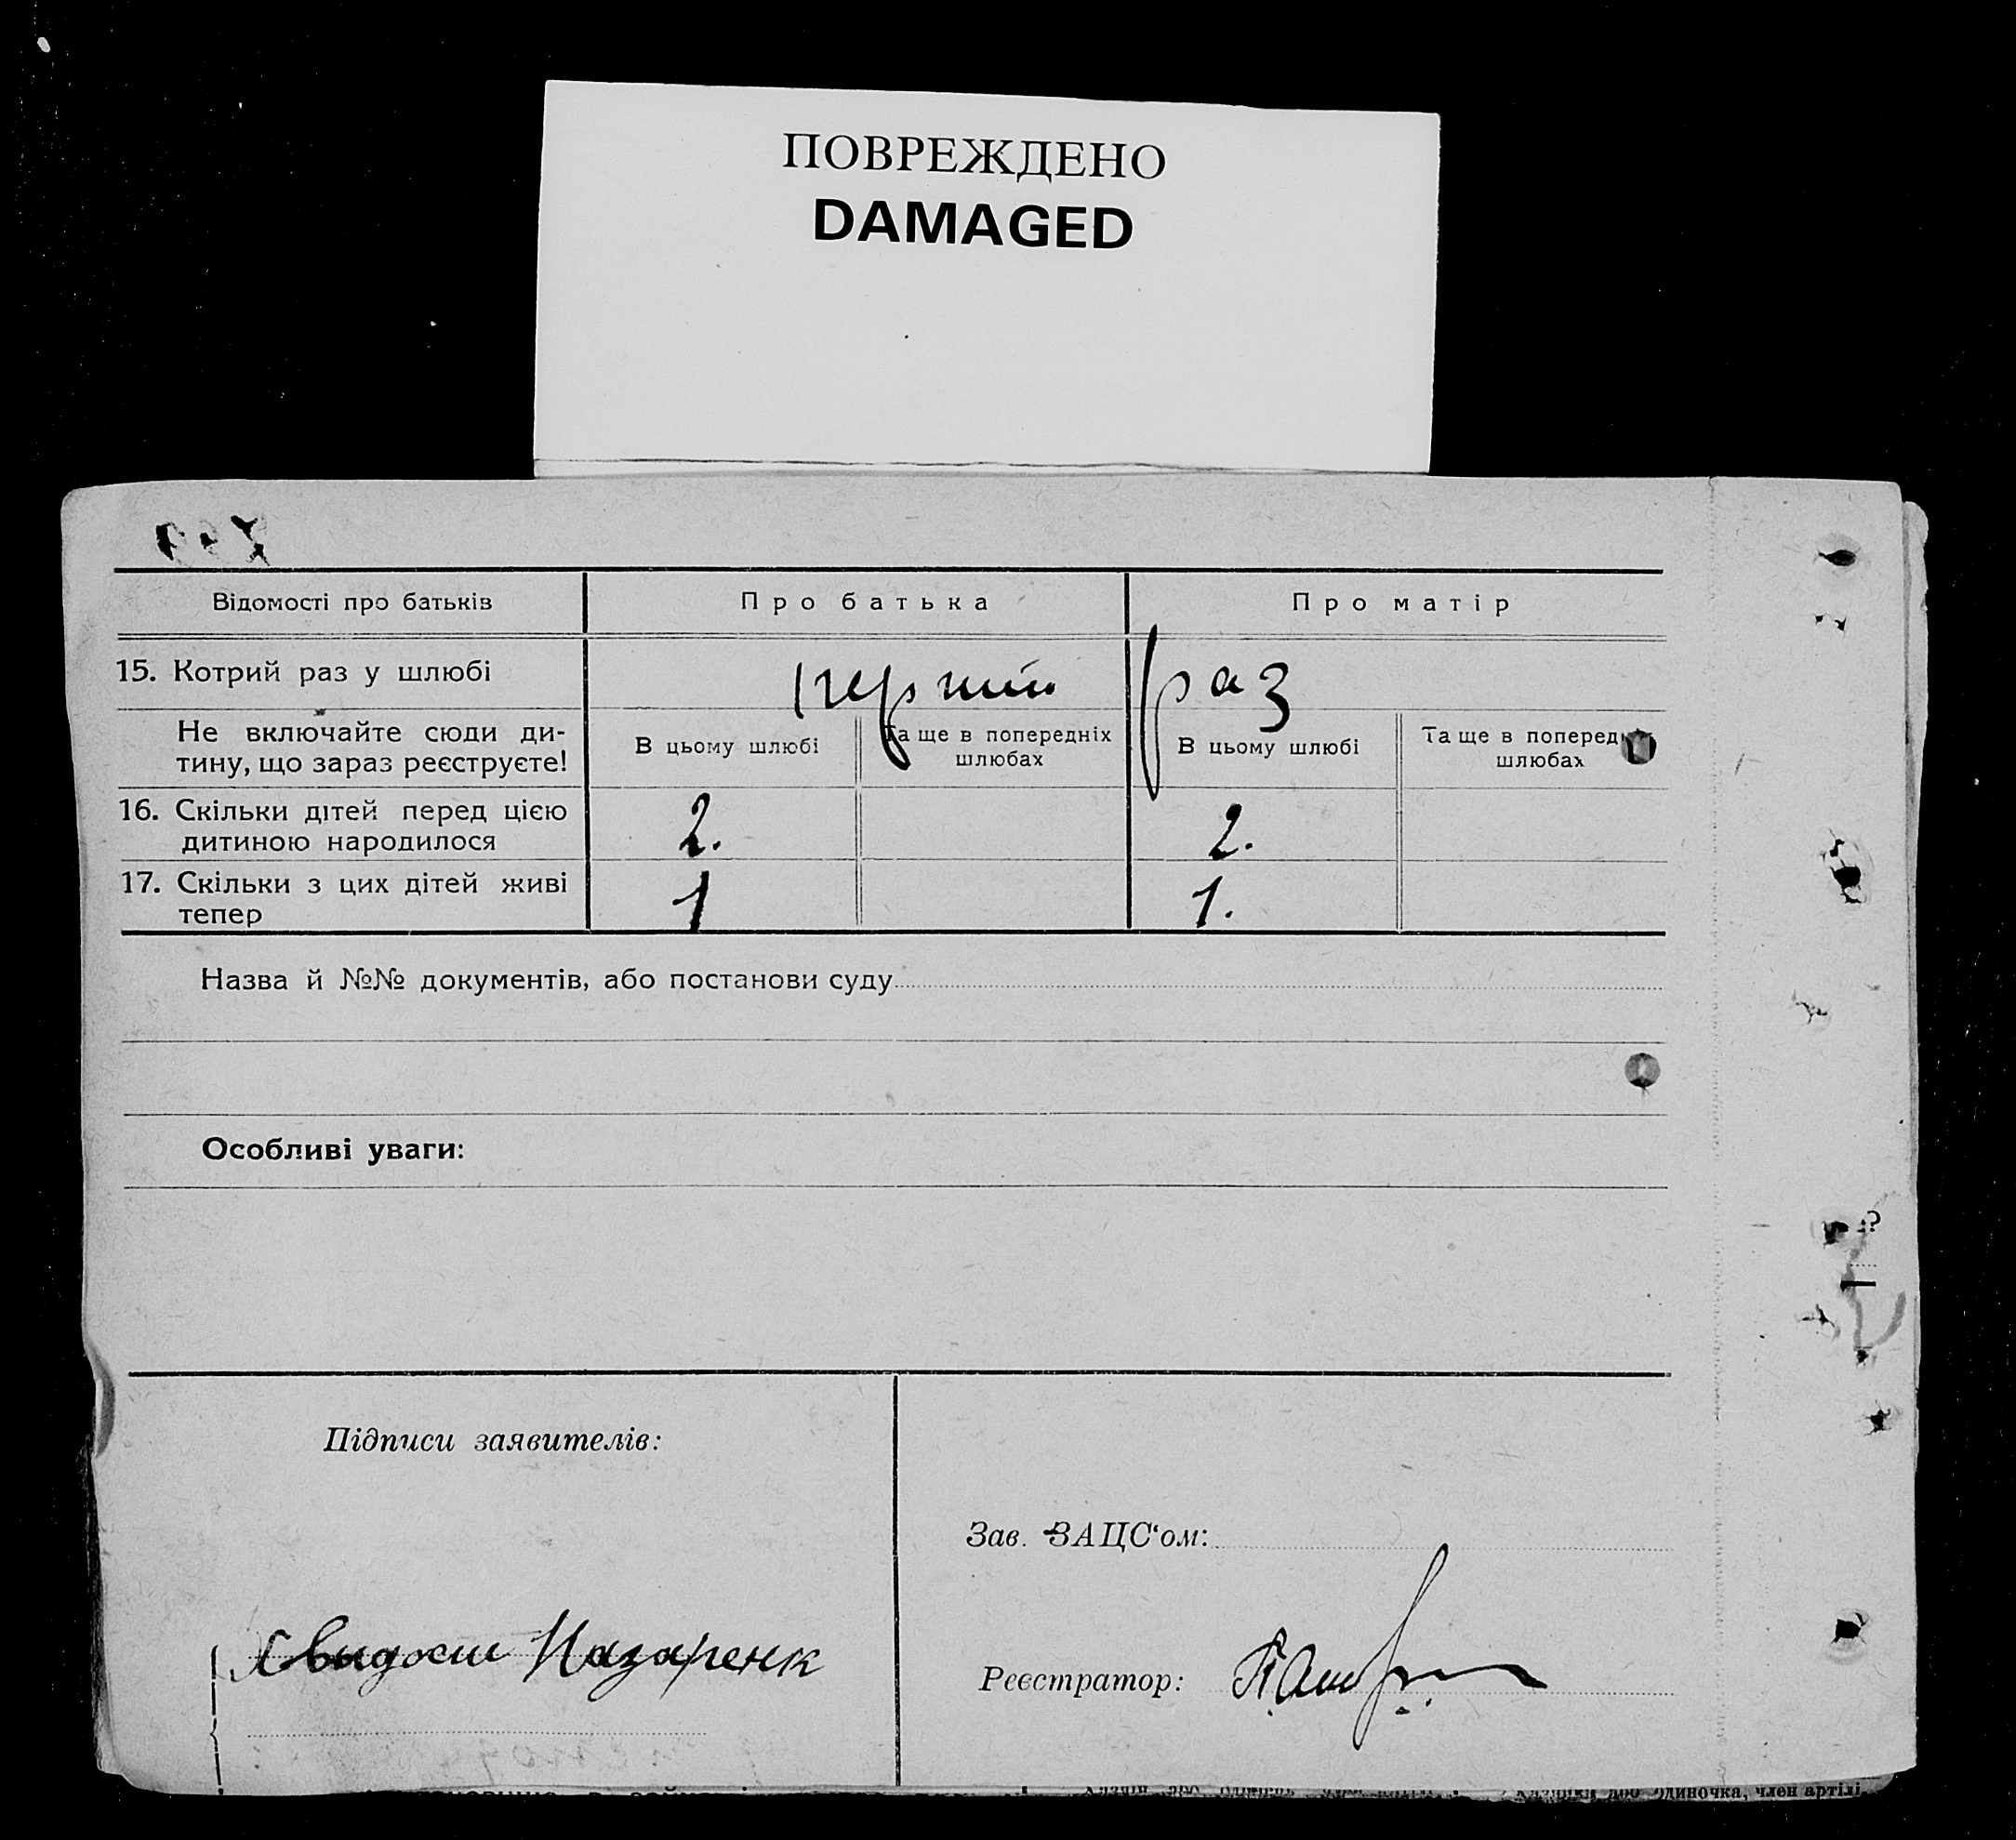 ПОВРЕЖДЕНО
DAMAGED
Відомості про батьків
Про батька
Про матір
15. Котрий раз у шлюбі
перший раз
Не включайте сюди ди-
тину, що зараз реєструєте!
В цьому шлюбі
Та ще в попередніх
шлюбах
В цьому шлюбі
Та ще в поперед
шлюбах
16. Скільки дітей перед цією
дитиною народилося
2.
2.
17. Скільки з цих дітей живі
тепер
1
1.
Назва й №№ документів, або постанови суду
Особливі уваги:
Підписи заявителів:
Зав. ЗАЦС‘ом:
Назаренк
Реєстратор:
одиночка, член артілі